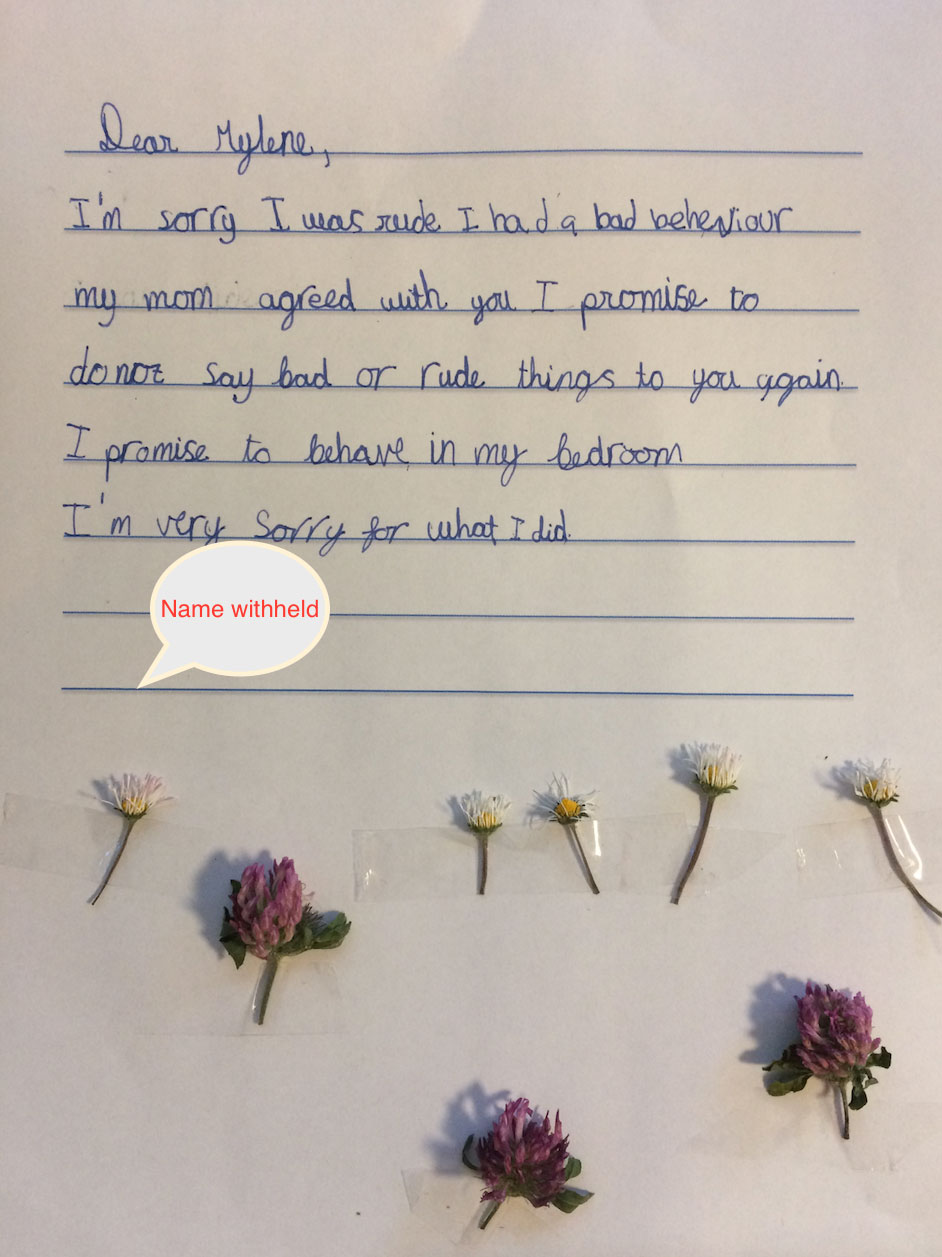 Dear Mylene,
I'm sorry I was rude I had a bad beheviour
my mom agreed with you I promise to
do not say bad or rude things to you again.
I promise to behave in my bedroom
I'm very sorry for what I did.
Name withheld